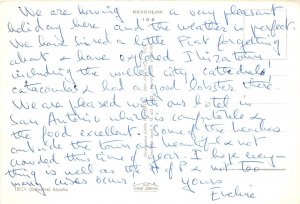 We are having a very pleasant
holiday here and the weather is perfect.
We have hired a little Fiat for getting
about & have explored Ibiza town
including the walled city, cathedral
catacombs & had a good lobster there.
We are pleased with our hotel in
San Antonio which is comfortable &
the food excellent. Some of the beaches
outside the town are lovely & not
crowded this time of year. I hope every-
thing is well at the H of S & not too
many crises occur. Yours
Eveline
NEXCOLOR
IBIZA (Baleares) España